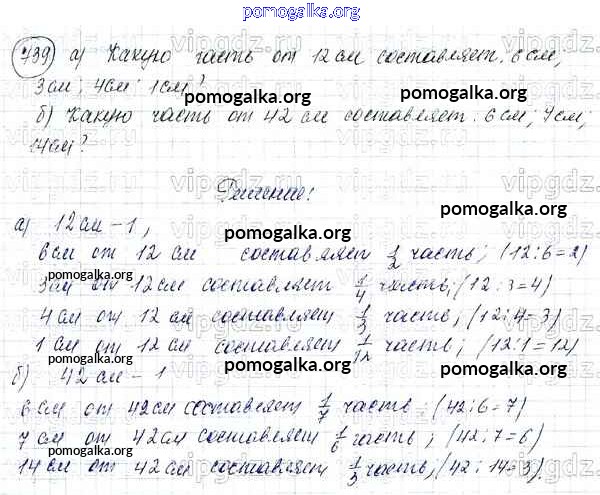 pomogalka.org
739) а) Какую часть от 12 см составляет: 6 см,
3 см; 4 см; 1 см?
pomogalka.org pomogalka.org
б) Какую часть от 42 см составляет: 6 см; 7 см;
14 см?
pomogalka.org pomogalka.org
Решение:
а) 12 см – 1,
pomogalka.org
6 см от 12 см составляет 1/2 часть; (12:6=2)
pomogalka.org pomogalka.org
3 см от 12 см составляет 1/4 часть; (12:3=4)
4 см от 12 см составляет 1/3 часть; (12:4=3)
pomogalka.org
1 см от 12 см составляет 1/12 часть; (12:1=12)
pomogalka.org
б) 42 см – 1
pomogalka.org
6 см от 42 см составляет 1/7 часть; (42:6=7)
7 см от 42 см составляет 1/6 часть; (42:7=6)
pomogalka.org
14 см от 42 см составляет 1/3 часть; (42:14=3).
pomogalka.org